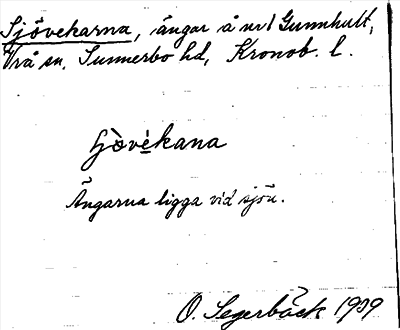 Sjövekarna, ängar å nr 1 Gunnhult,
Vrå sn. Sunnerbo hd, Kronob. l.
vékana
Ängarna ligga vid sjön.
O. Segerbäck 1909